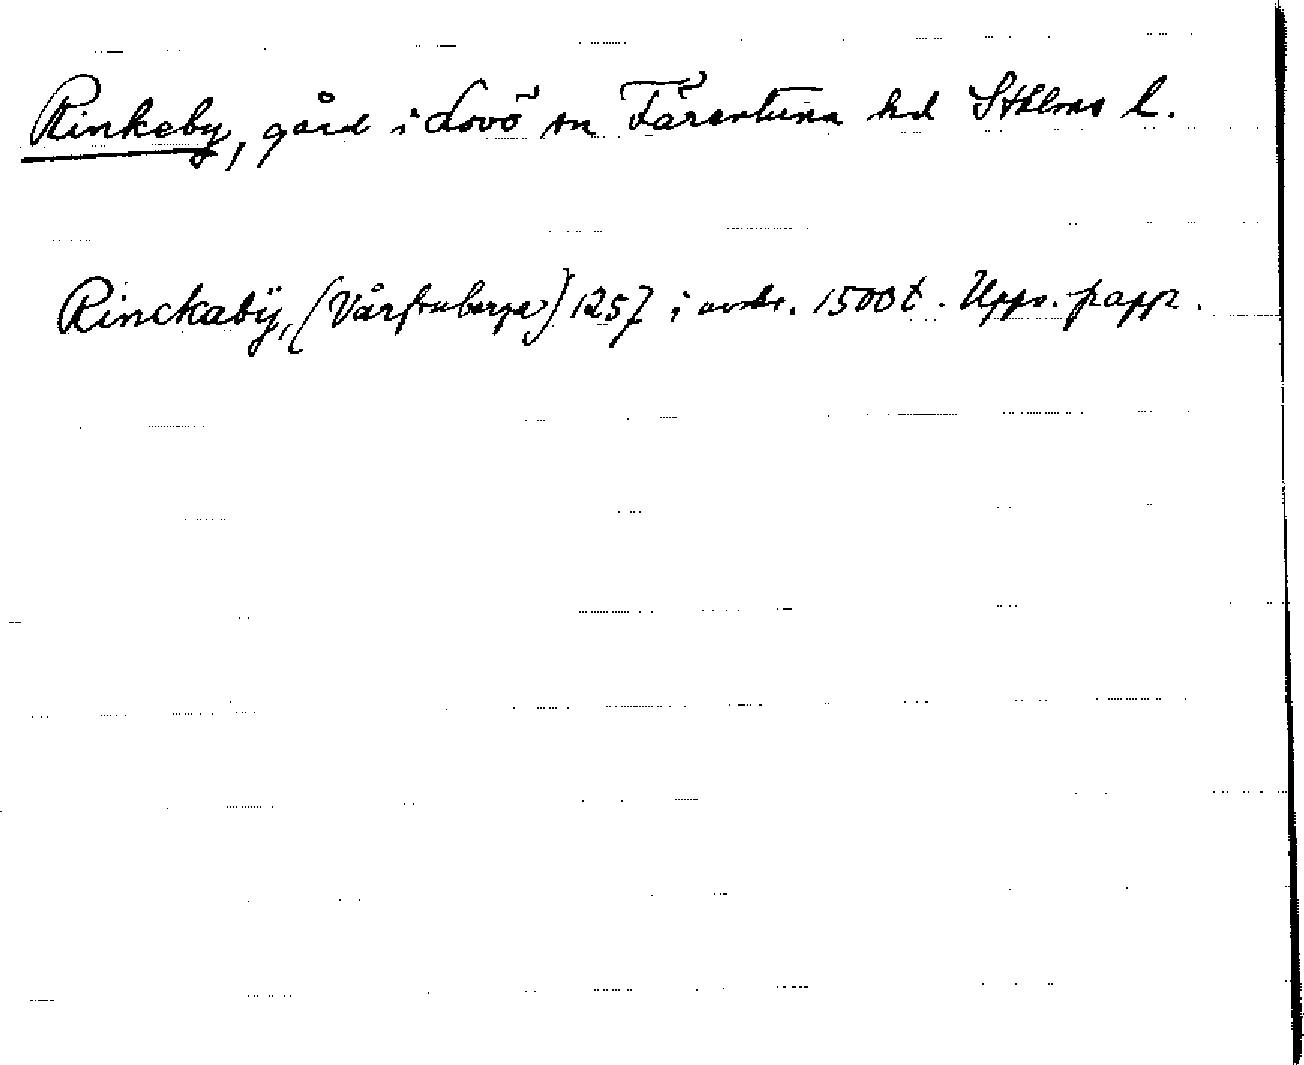 Rinkeby, gård i Lovö sn Färentuna hd Sthlms l.
Rinckabÿ, (Vårfruberga) 1257 i avskr. 1500 t. Upps. papp.